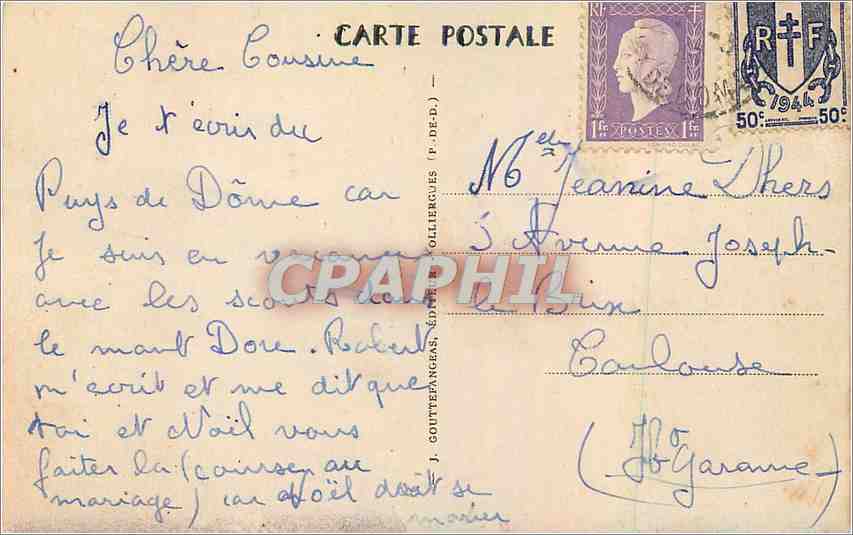 CARTE POSTALE
Chère Cousine
Je t'écris du
Puys de Dôme car
Je suis en vacances
avec les scouts dans
le mont Dore. Robert
m'écrit et me dit que
toi et Noël vous
faites la (course au
mariage) car Noël doit se
marier
J. GOUTTEFANGEAS, ÉDITEUR, OLLIERGUES (P.-DE-D.)
RF
1 Fr POSTES 1 Fr
R F
1944
50c 50c
Melle Jeanine Dhers
5 Avenue Joseph-
le Brix
Toulouse
(Hte Garonne)
CPAPHIL